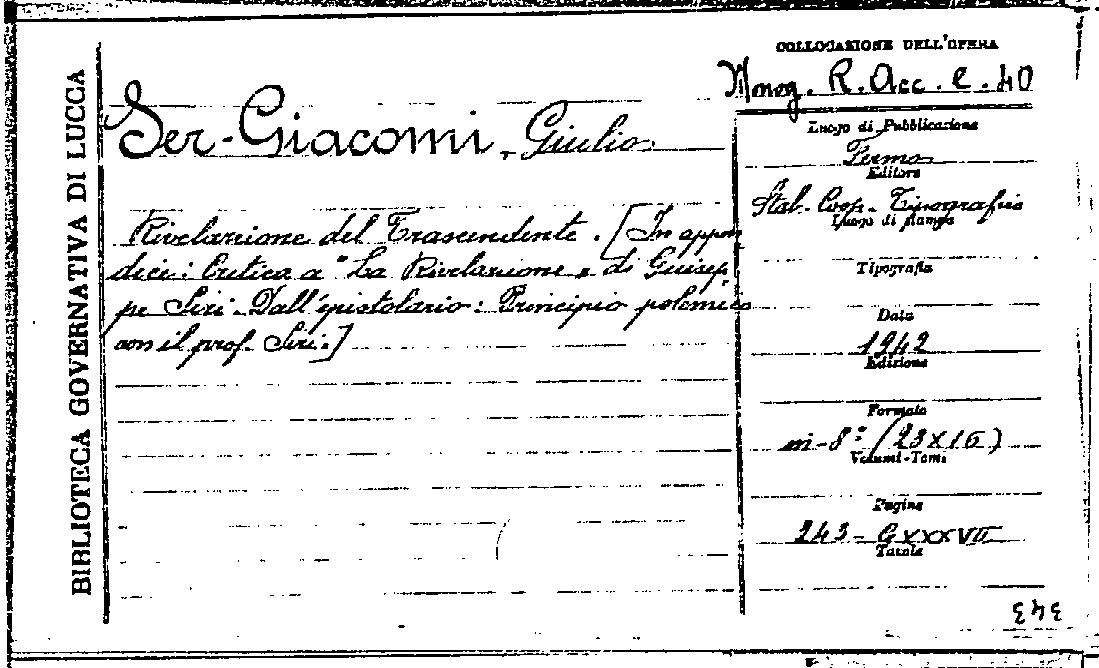 BIBLIOTECA GOVERNATIVA DI LUCCA
Ser-Giacomi, Giulio
Rivelazione del Trascendente. [In appen
dice: Critica a "La Rivelazione" di Giusep
pe Siri. Dall'epistolario: Principio polemico
con il prof. Siri.]
COLLOCAZIONE DELL'OPERA
Monog. R. Acc. C. 40
Luogo di Pubblicazione
Fermo
Editore
Stab. Coop. Tipografia
Luogo di stampa
Tipografia
Data
1942
Edizione
Formato
in-8° (23x16)
Volumi-Tomi
Pagine
243 - CXXXVII
Tavole
343